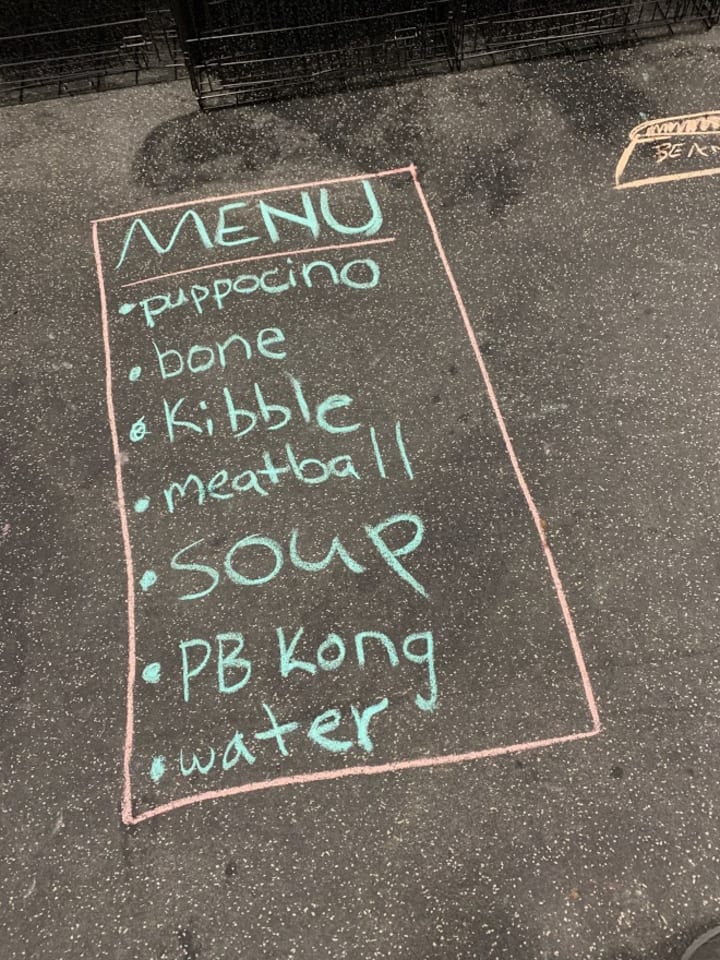 MENU
• puppocino
• bone
• Kibble
• meatball
• soup
• PB Kong
• water